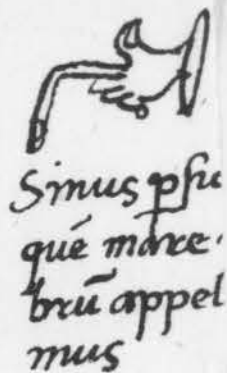 Sinus ꝑſu
qué mare·
brū appel
mus